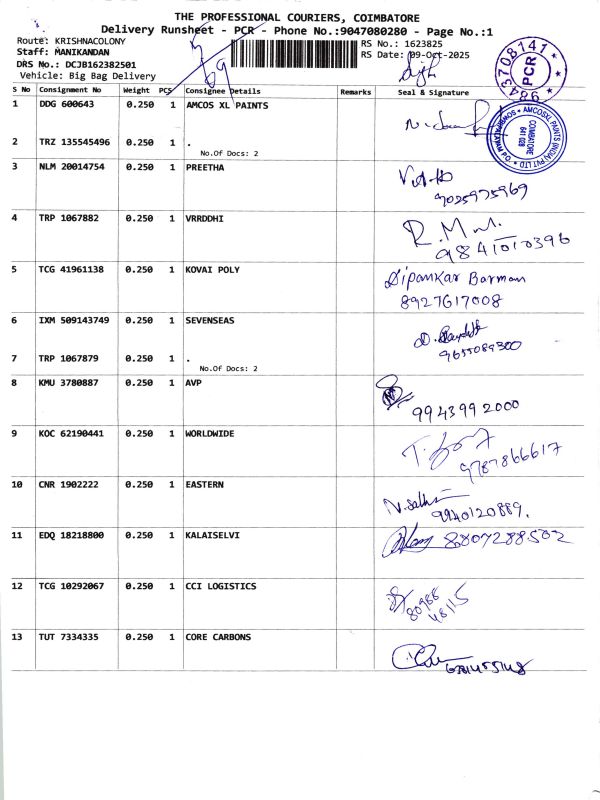 THE PROFESSIONAL COURIERS, COIMBATORE
Delivery Runsheet - PCR - Phone No.:9047080280 - Page No.:1
Route: KRISHNACOLONY
RS No.: 1623825
Staff: MANIKANDAN
RS Date: 09-Oct-2025
DRS No.: DCJB162382501
Vehicle: Big Bag Delivery
69
PCR
S No Consignment No Weight PCS Consignee Details Remarks Seal & Signature
1 DDG 600643 0.250 1 AMCOS XL PAINTS
COIMBATORE
641 028
2 TRZ 135545496 0.250 1 .
No.Of Docs: 2
3 NLM 20014754 0.250 1 PREETHA
9025975969
4 TRP 1067882 0.250 1 VRRDDHI
R.M.M.
9841010396
5 TCG 41961138 0.250 1 KOVAI POLY Dipankar Barman
8927617008
6 IXM 509143749 0.250 1 SEVENSEAS
9655089300
7 TRP 1067879 0.250 1 .
No.Of Docs: 2
8 KMU 3780887 0.250 1 AVP
9943992000
9 KOC 62190441 0.250 1 WORLDWIDE
9787866617
10 CNR 1902222 0.250 1 EASTERN
9940120889.
11 EDQ 18218800 0.250 1 KALAISELVI 8807288502
12 TCG 10292067 0.250 1 CCI LOGISTICS
80988
48115
13 TUT 7334335 0.250 1 CORE CARBONS